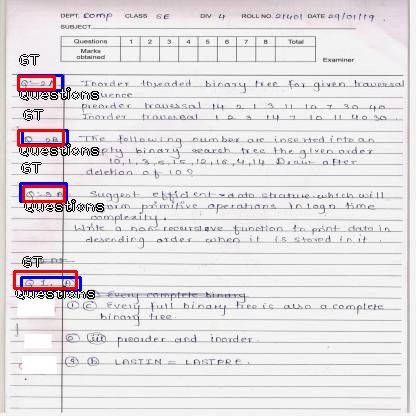 DEPT. Comp CLASS SE DIV 4 ROLL NO. 21401 DATE 29/01/19
SUBJECT
Questions 1 2 3 4 5 6 7 8 Total
Marks obtained
Examiner
GT
Q-2A Inorder threaded binary tree for given traversal
Questions
preorder traversal 14 2 1 3 11 10 7 30 40
GT
Inorder traversal 1 2 3 14 7 10 11 40 30
Q-2B The following number are inserted into an
Questions
empty binary search tree the given order
10, 1, 3, 5, 15, 12, 16, 4, 14 Draw after
GT
deletion of 10?
Suggest efficient data strature which will
Questions
primitive operations in logn time
complexity.
Write a non recursive function to print data in
desending order when it is stored in it.
GT
Questions
Every complete binary
c Every full binary tree is also a complete
binary tree.
iii preorder and inorder.
b LASTIN = LASTPRE.